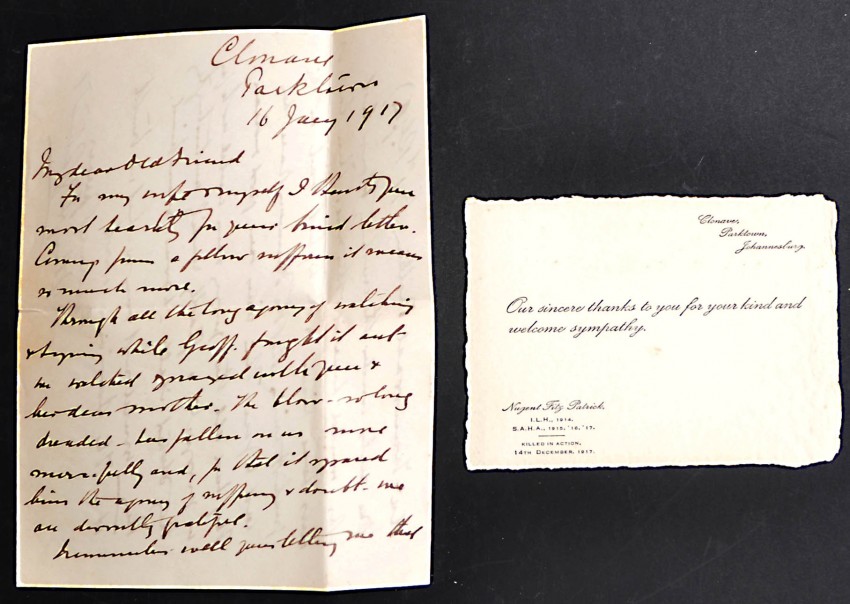 Clonave
Parktown
16 Jany 1917
My dear Old Friend
For my wife & myself I thank you
most heartily for your kind letter.
Coming from a fellow sufferer it means
so much more.
Through all the long agony of watching
& hoping while Geoff. fought it out
we watched & prayed with you &
her dear mother. The blow - so long
dreaded - has fallen on us more
mercifully and, for that it spared
him the agony of suffering & doubt - we
are devoutly grateful.
I remember well your telling me that
Clonave,
Parktown,
Johannesburg.
Our sincere thanks to you for your kind and
welcome sympathy.
Nugent Fitz Patrick.
I.L.H., 1914.
S.A.H.A., 1915, '16, '17.
KILLED IN ACTION,
14TH DECEMBER, 1917.